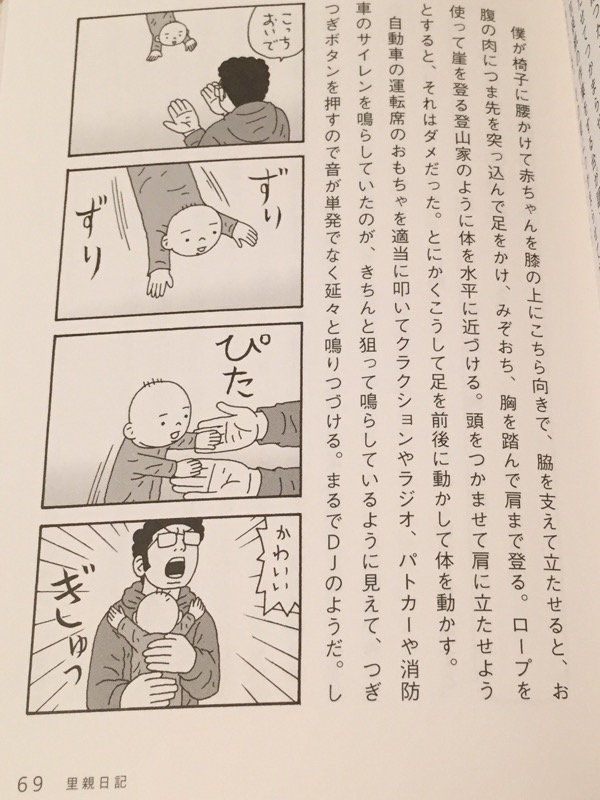 僕が椅子に腰かけて赤ちゃんを膝の上にこちら向きで、脇を支えて立たせると、お
腹の肉につま先を突っ込んで足をかけ、みぞおち、胸を踏んで肩まで登る。ロープを
使って崖を登る登山家のように体を水平に近づける。頭をつかませて肩に立たせよう
とすると、それはダメだった。とにかくこうして足を前後に動かして体を動かす。
自動車の運転席のおもちゃを適当に叩いてクラクションやラジオ、パトカーや消防
車のサイレンを鳴らしていたのが、きちんと狙って鳴らしているように見えて、つぎ
つぎボタンを押すので音が単発でなく延々と鳴りつづける。まるでDJのようだ。し
こっち
おいで
ずり
ずり
ぴた
かわいい
ぎしゅっ
69 里親日記